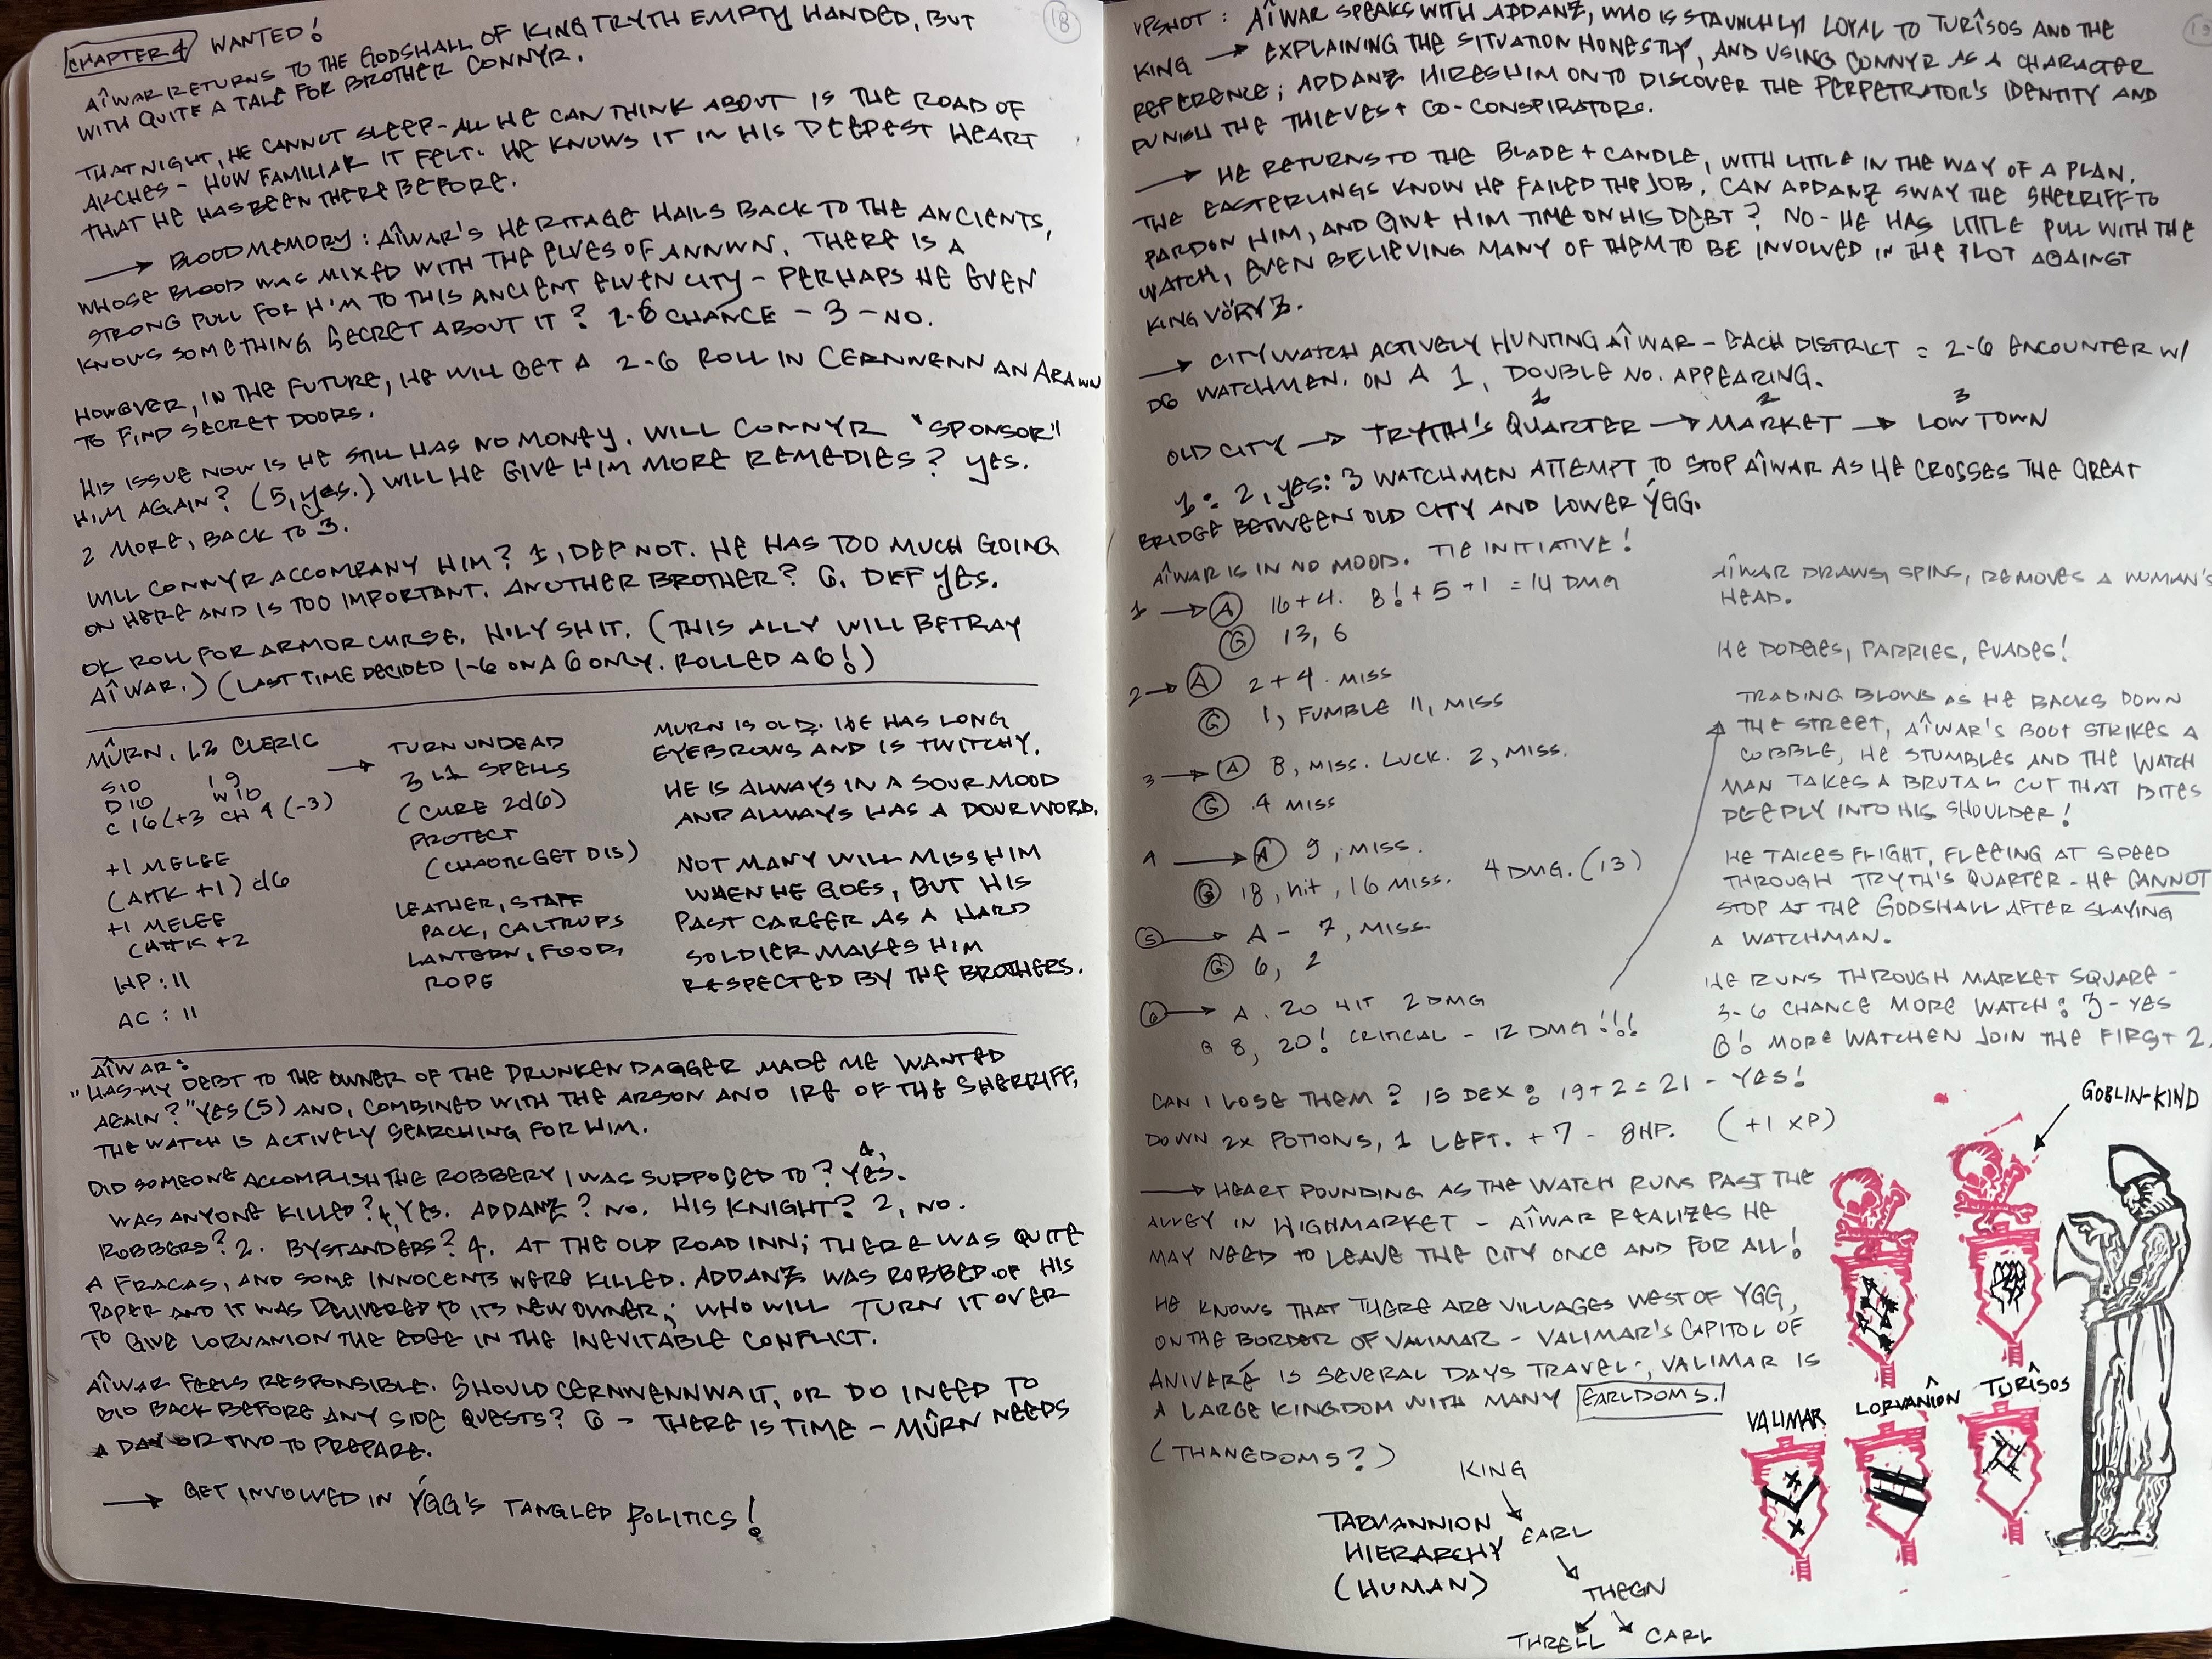 18
CHAPTER 4 WANTED!
AÎWAR RETURNS TO THE GODSHALL OF KING TRYTH EMPTY HANDED, BUT
WITH QUITE A TALE FOR BROTHER CONNYR.
THAT NIGHT, HE CANNOT SLEEP - ALL HE CAN THINK ABOUT IS THE ROAD OF
ARCHES - HOW FAMILIAR IT FELT. HE KNOWS IT IN HIS DEEPEST HEART
THAT HE HAS BEEN THERE BEFORE.
→ BLOOD MEMORY: AÎWAR'S HERITAGE HAILS BACK TO THE ANCIENTS,
WHOSE BLOOD WAS MIXED WITH THE ELVES OF ANNWN. THERE IS A
STRONG PULL FOR HIM TO THIS ANCIENT ELVEN CITY - PERHAPS HE EVEN
KNOWS SOMETHING SECRET ABOUT IT? 2-6 CHANCE - 3 - NO.
HOWEVER, IN THE FUTURE, HE WILL GET A 2-6 ROLL IN CERNWENN AN ARAWN
TO FIND SECRET DOORS.
HIS ISSUE NOW IS HE STILL HAS NO MONEY. WILL CONNYR "SPONSOR"
HIM AGAIN? (5, YES.) WILL HE GIVE HIM MORE REMEDIES? YES.
2 MORE, BACK TO 3.
WILL CONNYR ACCOMPANY HIM? 1, DEF NOT. HE HAS TOO MUCH GOING
ON HERE AND IS TOO IMPORTANT. ANOTHER BROTHER? 6. DEF YES.
OK ROLL FOR ARMOR CURSE. HOLY SHIT. (THIS ALLY WILL BETRAY
AÎWAR.) (LAST TIME DECIDED 1-6 ON A 6 ONLY. ROLLED A 6!)
MÛRN. L3 CLERIC
S10 I9
D10 W10
C 16 (+3 CH 4 (-3)
+1 MELEE
(ATTK +1) d6
+1 MELEE
CATTK +2
HP: 11
AC: 11
→ TURN UNDEAD
3 L1 SPELLS
(CURE 2d6)
PROTECT
(CHAOTIC GET DIS)
LEATHER, STAFF
PACK, CALTROPS
LANTERN, FOOD,
ROPE
MURN IS OLD. HE HAS LONG
EYEBROWS AND IS TWITCHY.
HE IS ALWAYS IN A SOUR MOOD
AND ALWAYS HAS A DOUR WORD.
NOT MANY WILL MISS HIM
WHEN HE GOES, BUT HIS
PAST CAREER AS A HARD
SOLDIER MAKES HIM
RESPECTED BY THE BROTHERS.
AÎWAR:
"HAS MY DEBT TO THE OWNER OF THE DRUNKEN DAGGER MADE ME WANTED
AGAIN?" YES (5) AND, COMBINED WITH THE ARSON AND IRE OF THE SHERRIFF,
THE WATCH IS ACTIVELY SEARCHING FOR HIM.
DID SOMEONE ACCOMPLISH THE ROBBERY I WAS SUPPOSED TO? 4, YES.
WAS ANYONE KILLED? 4, YES. ADDANZ? NO. HIS KNIGHT? 2, NO.
ROBBERS? 2. BYSTANDERS? 4. AT THE OLD ROAD INN; THERE WAS QUITE
A FRACAS, AND SOME INNOCENTS WERE KILLED. ADDANZ WAS ROBBED OF HIS
PAPER AND IT WAS DELIVERED TO ITS NEW OWNER; WHO WILL TURN IT OVER
TO GIVE LORVANION THE EDGE IN THE INEVITABLE CONFLICT.
AÎWAR FEELS RESPONSIBLE. SHOULD CERNWENN WAIT, OR DO I NEED TO
GO BACK BEFORE ANY SIDE QUESTS? 6 - THERE IS TIME - MÛRN NEEDS
A DAY OR TWO TO PREPARE.
→ GET INVOLVED IN ÝGG'S TANGLED POLITICS!
19
UPSHOT: AÎWAR SPEAKS WITH ADDANZ, WHO IS STAUNCHLY LOYAL TO TURÎSOS AND THE
KING → EXPLAINING THE SITUATION HONESTLY, AND USING CONNYR AS A CHARACTER
REFERENCE; ADDANZ HIRES HIM ON TO DISCOVER THE PERPETRATOR'S IDENTITY AND
PUNISH THE THIEVES + CO-CONSPIRATORS.
→ HE RETURNS TO THE BLADE + CANDLE, WITH LITTLE IN THE WAY OF A PLAN.
THE EASTERLINGS KNOW HE FAILED THE JOB. CAN ADDANZ SWAY THE SHERRIFF TO
PARDON HIM, AND GIVE HIM TIME ON HIS DEBT? NO - HE HAS LITTLE PULL WITH THE
WATCH, EVEN BELIEVING MANY OF THEM TO BE INVOLVED IN THE PLOT AGAINST
KING VÖRYZ.
→ CITY WATCH ACTIVELY HUNTING AÎWAR - EACH DISTRICT = 2-6 ENCOUNTER W/
D6 WATCHMEN. ON A 1, DOUBLE NO. APPEARING.
1 2 3
OLD CITY → TRYTH'S QUARTER → MARKET → LOW TOWN
1: 2, YES: 3 WATCHMEN ATTEMPT TO STOP AÎWAR AS HE CROSSES THE GREAT
BRIDGE BETWEEN OLD CITY AND LOWER ÝGG.
AÎWAR IS IN NO MOOD. TIE INITIATIVE!
1 → A 16+4. 8! + 5 + 1 = 14 DMG
G 13, 6
2 → A 2+4. MISS
G 1, FUMBLE 11, MISS
3 → A 8, MISS. LUCK. 2, MISS.
G 4 MISS
4 → A 9, MISS.
G 18, HIT, 16 MISS. 4 DMG. (13)
5 → A - 7, MISS
G 6, 2
6 → A. 20 HIT 2 DMG
G 8, 20! CRITICAL - 12 DMG!!!
AÎWAR DRAWS, SPINS, REMOVES A HUMAN'S
HEAD.
HE DODGES, PARRIES, EVADES!
TRADING BLOWS AS HE BACKS DOWN
THE STREET, AÎWAR'S BOOT STRIKES A
COBBLE, HE STUMBLES AND THE WATCH
MAN TAKES A BRUTAL CUT THAT BITES
DEEPLY INTO HIS SHOULDER!
HE TAKES FLIGHT, FLEEING AT SPEED
THROUGH TRYTH'S QUARTER - HE CANNOT
STOP AT THE GODSHALL AFTER SLAYING
A WATCHMAN.
HE RUNS THROUGH MARKET SQUARE -
3-6 CHANCE MORE WATCH: 3 - YES
6! MORE WATCHEN JOIN THE FIRST 2.
CAN I LOSE THEM? 15 DEX: 19+2=21 - YES!
DOWN 2X POTIONS, 1 LEFT. +7 - 8HP. (+1 XP)
→ HEART POUNDING AS THE WATCH RUNS PAST THE
ALLEY IN HIGHMARKET - AÎWAR REALIZES HE
MAY NEED TO LEAVE THE CITY ONCE AND FOR ALL!
HE KNOWS THAT THERE ARE VILLAGES WEST OF YGG,
ON THE BORDER OF VALIMAR - VALIMAR'S CAPITOL OF
ANIVERÉ IS SEVERAL DAYS TRAVEL; VALIMAR IS
A LARGE KINGDOM WITH MANY EARLDOMS!
(THANEDOMS?)
KING
TARVANNION EARL
HIERARCHY
(HUMAN)
THEGN
THRELL CARL
GOBLIN-KIND
VALIMAR LORVANÎON TURÎSOS